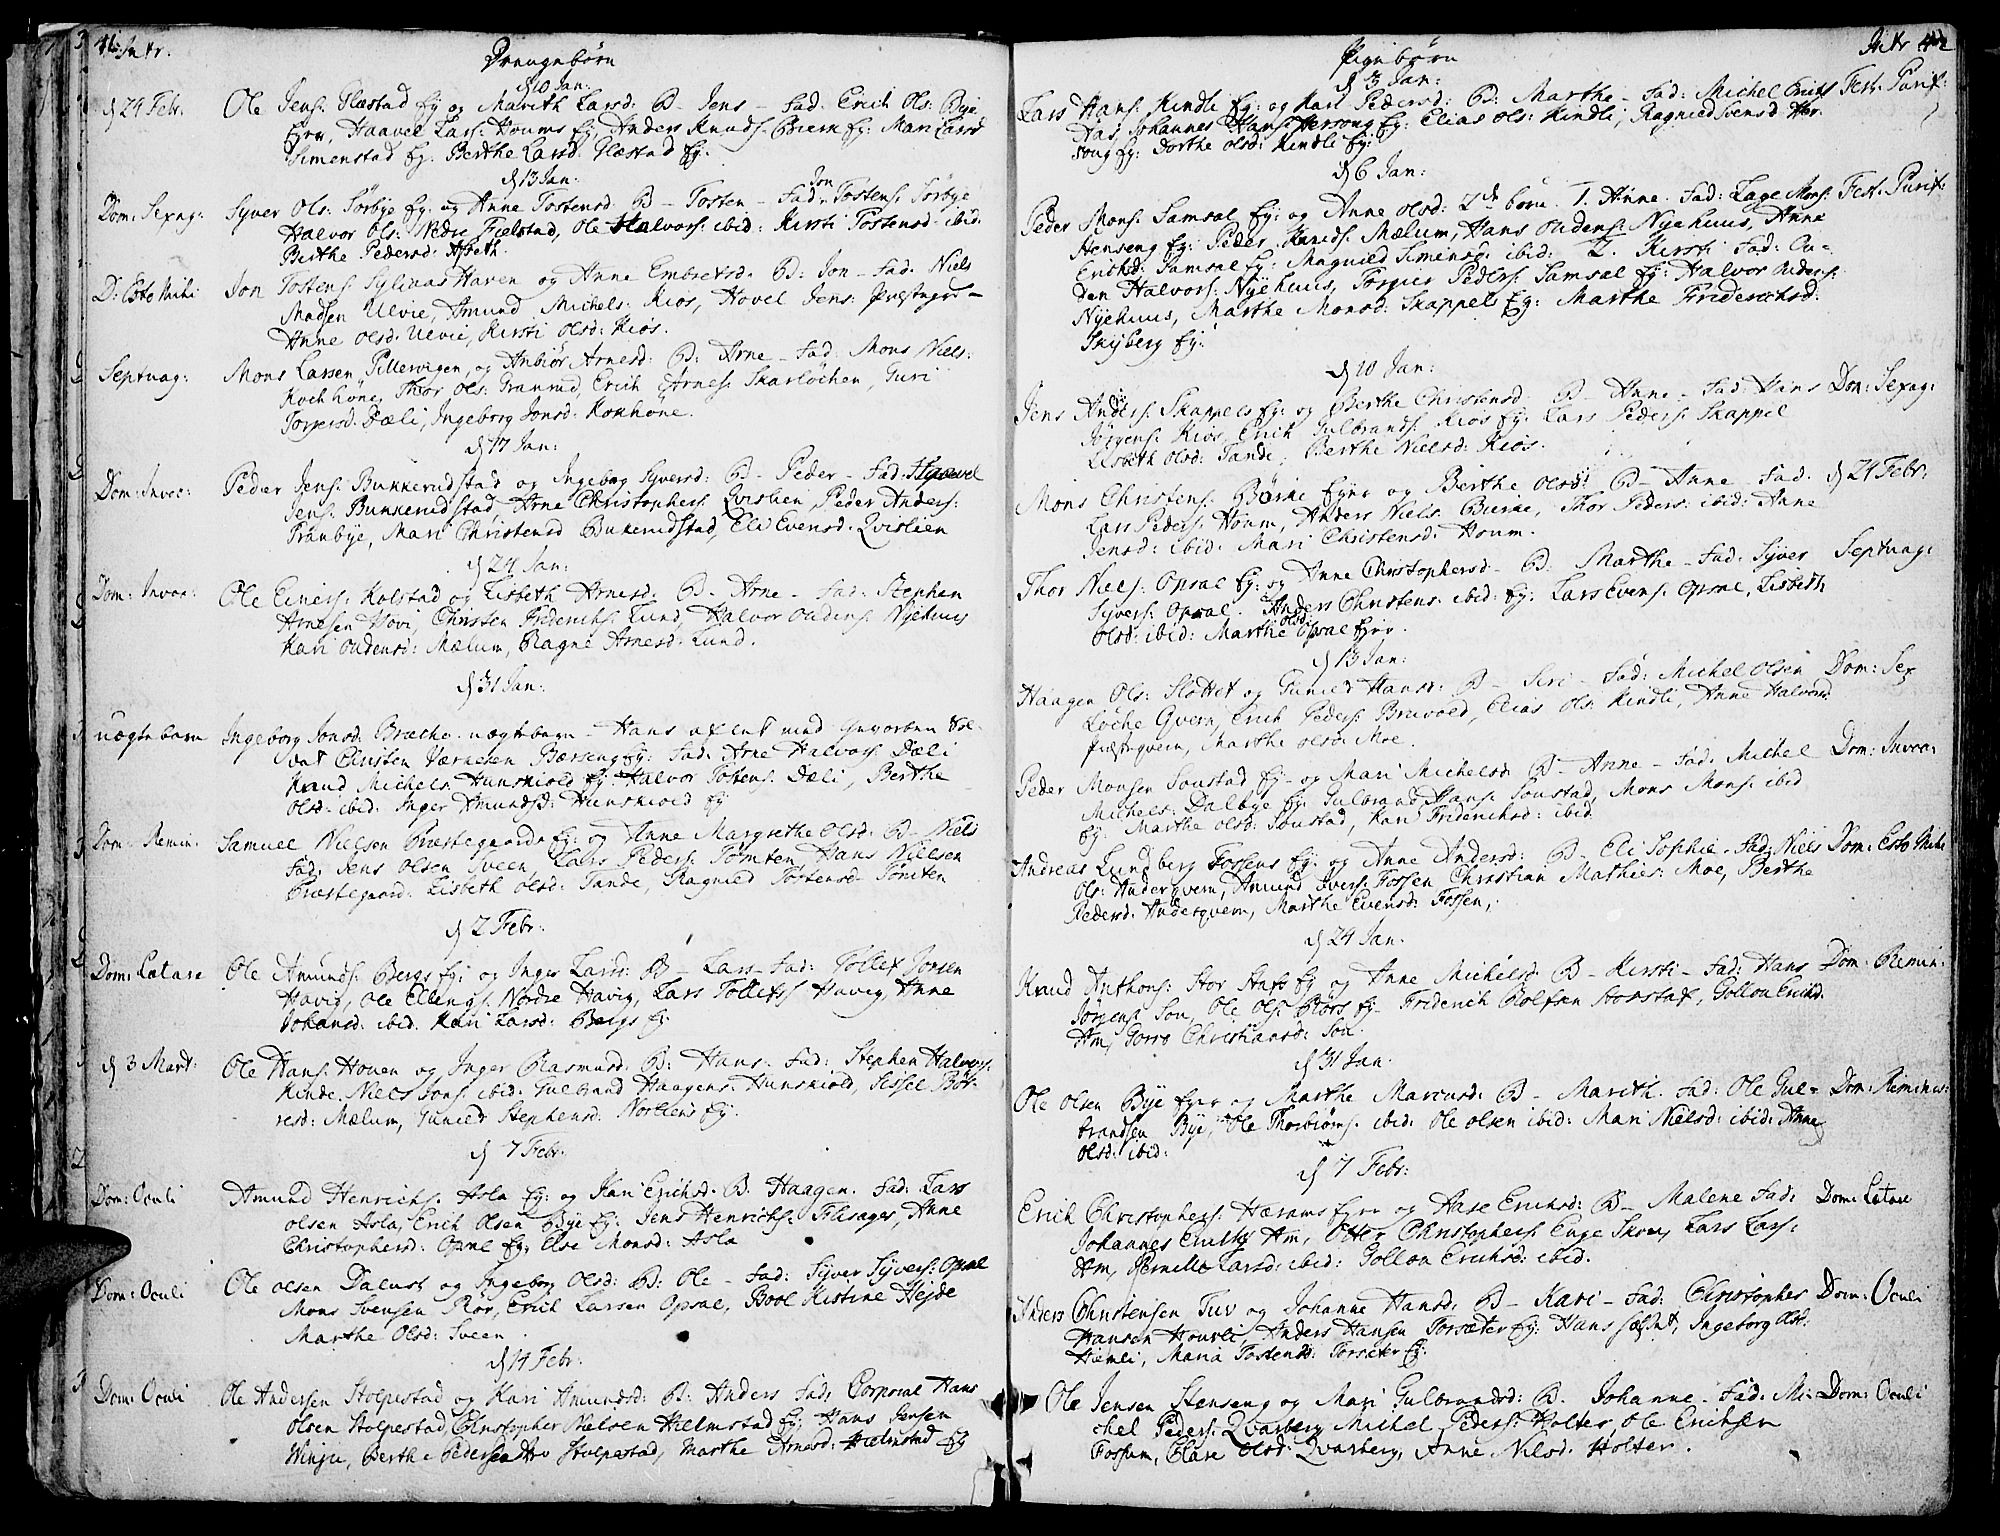 46 Intr.
Drengebørn
d 10 Jan:
d 24 Febr. Ole Jens: Næstad Ej og Marith Larsd: B- Jens - Fad: Erich Ols: Bye
Ejer, Haavel Lars: Houms Ej, Anders Knuds: Bierke Ej: Mari Larsd
Simenstad Ej. Berthe Larsd: Næstad Ej.
d 13 Jan:
Dom: Sexag: Syver Ols: Sørbye Ej: og Anne Tostensd: B- Tosten - Fad: Jon Tostens: Sørbye
Halvor Ols: Nedre Fielstad, Ole Halvors: ibid: Kirsti Tostensd: ibid:
Berthe Pedersd:
D: Esto Mihi Jon Tostens: og Anne Embretsd: B: Jon - Fad: Niels
Madsen Ulvie, Amund Michels: Kios, Hovel Jens: Prestager-
Anne Olsd: Ulvie, Kirsti Olsd: Kiøs.
Septuag: Mons Larsen Pillervigen, og Anbiør Arnesd: B: Arne - Fad: Mons Niels:
Kochhone, Thor Ols: Granrud, Erich Arnes: Skarløchen, Guri
Torgersd: Dæli, Ingeborg Jonsd: Kokhone.
d 17 Jan:
Dom: Invoc: Peder Jens: Bukkerudstad og Ingeborg Syversd: B- Peder - Fad:
Jens: Bukkerudstad, Arne Christophers: Qvislien, Peder Anders:
Franbye, Mari Christensd Bukerudstad, Eli Evensd: Qvislien
d 24 Jan:
Dom: Invoc: Ole Einers: Kolstad og Lisbeth Arnesd: B- Arne - Fad: Stephen
Arnesen Hovi, Christen Friderichs: Lund, Halvor Oudens: Nyehuus
Kari Oudensd: Mælum, Ragne Arnesd: Lund.
d 31 Jan:
uægte barn Ingeborg Jonsd: Bræche uægte barn - Hans aflet med Sol-
dat Christen Værnesen Børseng Ej: Fad: Arne Halvors: Dæli
Knud Michels: Hunskiold Ej: Halvor Tostens: Dæli, Berthe
Olsd: ibid: Inger Amundsd: Hunskiold Ej
Dom: Remin: Samuel Nielsen Præstegaards Ej: og Anne Margrethe Olsd: B- Niels
Fad: Jens Olsen Sveen, Lars Peders: Tomten, Hans Nielsen
Præstegaard. Lisbeth Olsd: Tande, Ragnild Tostensd: Tomten
d 2 Febr:
Dom: Lætare Ole Amunds: Bergs Ej: og Inger Larsd: B- Lars - Fad: Tollef Jonsen
Havig, Ole Ellengs: Nordre Havig, Lars Tollefs: Havig, Anne
Johansd: ibid. Kari Larsd: Bergs Ej:
d 3 Mart: Ole Hans: Hoven og Inger Rasmusd: B: Hans - Fad: Stephen Halvors:
Kinde, Niels Jons: ibid: Gulbrand Haagens: Hunskiold, Sissel Bør-
resd: Mælum, Gunild Stephensd: Norliens Ej.
d 7 Febr:
Dom: Oculi Amund Henrichs: Asla Ej: og Kari Erichsd: B. Haagen. Fad: Lars
Olsen Asla, Erich Olsen Bye Ej: Jens Henrichs: Flisager, Anne
Christophersd: Opsal Ej: Else Monsd: Asla
Dom: Oculi Ole Olsen Dalust og Ingeborg Olsd: B: Ole - Fad: Syver Syvers: Opsal
Mons Svensen Rør, Erich Larsen Opsal, Bool Kistine Hejde
Marthe Olsd: Sveen.
d 14 Febr:
Dom: Oculi Ole Andersen Stolpestad og Kari Amundsd: B: Anders Fad: Corporal Hans
Olsen Stolpestad, Christopher Nielsen Hielmstad Ej: Hans Jensen
Winju, Berthe Pedersen Stolpestad, Marthe Arnesd: Hielmstad Ej
Intr
Pigebørn
d 3 Jan:
Lars Hans: Kindli Ej: og Kari Pedersd: B: Marthe - Fad: Michel Erichs: Fest: Purif:
Johannes Hans: Hersoug Ej: Elias Ols: Kindli, Ragnild Svensd: Her-
soug Ej: Dorthe Olsd: Kindli Ej:
d 6 Jan:
Peder Mons: Samsal Ej: og Anne Olsd: 2de børn. 1. Anne. Fad: Lage Mons: Fest: Purif:
Henseng Ej: Peder Knuds: Mælum, Hans Oudens: Nyehuus, Anne
Erichsd: Samsal Ej: Magnild Simensd: ibid: 2. Kirsti Fad: Ou-
den Halvors: Nyehuus, Torger Peders: Samsal Ej: Halvor Oudens:
Nyehuus, Marthe Monsd: Skappels Ej: Marthe Friderichsd:
Skyberg Ej:
d 10 Jan:
Jens Anders: Skappels Ej: og Berthe Christensd: B- Anne - Fad: Hans Dom: Sexag:
Jørgens: Kiøs, Erich Gulbrands: Kiøs Ej: Lars Peders: Skappel
Lisbeth Olsd: Tande, Berthe Nielsd: Kiøs.
Mons Christens: Børke Ejer og Berthe Olsd: B- Anne - Fad: d 24 Febr:
Lars Peders: Houm, Anders Niels: Bierke, Thor Peders: ibid: Anne
Jensd: ibid: Mari Christensd: Houm.
Thor Niels: Opsal Ej: og Anne Christophersd- B: Marthe - Fad: Syver Septuag:
Syvers: Opsal. Anders Christens: ibid: Ej: Lars Evens: Opsal, Lisbeth
Olsd: ibid: Marthe Olsd: Opsal Ejer.
d 13 Jan:
Haagen Ols: Slottet og Gunild Hansd: B- Siri - Fad: Michel Olsen Dom: Sex
Løche Qvern, Erich Peders: Bruvold, Elias Ols: Kindli, Anne Halvorsd
Præstqvern, Marthe Olsd: Moe.
Peder Monsen Soustad Ej- og Mari Michelsd: B- Anne - Fad: Michel Dom: Invoc:
Michels: Dalbye Ej: Gulbrand Hans: Soustad, Mons Mons: ibid
Ej: Marthe Olsd: Soustad, Kari Friderichsd: ibid
Andreas Lundberg Fossens Ej: og Anne Andersd: B- Eli Sophie - Fad: Niels Dom: Esto Mihi
Ols: Anderqvern, Amund Ivers: Fossen Christian Mathies: Moe, Berthe
Pedersd: Anderqvern, Marthe Evensd: Fossen,
d 24 Jan:
Knud Anthons: Stor Ej og Anne Michelsd: B- Kirsti - Fad: Hans Dom: Remin:
Jørgens: Son, Ole Ols: Børs Ej- Friderich Rolfsen, Gollou Erichsd:
Am, Gorro Christiansd: Son.
d 31 Jan:
Ole Olsen Bye Ejer og Marthe Marcusd: B- Marith. Fad: Ole Gul- Dom: Reminis:
brandsen Bye, Ole Thorbiørns: ibid: Ole Olsen ibid: Mari Nielsd: ibid: Anne
Olsd: ibid:
d 7 Febr:
Erich Christophers: Hærams Ejer og Aase Erichsd: B- Malene Fad: Dom: Lætare
Johannes Am, Otter Christophers: Enge Skou, Lars Lars:
Am, Pernille Larsd: ibid: Gollou Erichsd: ibid.
Anders Christensen Tuv og Johanne Hansd: B- Kari - Fad: Christopher Dom: Oculi
Hansen Hourli, Anders Hansen Torsæter Ej: Hans, Ingeborg Olsd:
Hiemli, Maria Tostensd: Torsæter Ej:
Ole Jensen Stenseng og Mari Gulbrandsd: B. Johanne - Fad: Mi- Dom: Oculi
chel Peders: Qvarberg, Michel Peders: Holter, Ole Erichsen
Fossum, Clare Olsd: Qvarberg, Anne Nilsd: Holter.